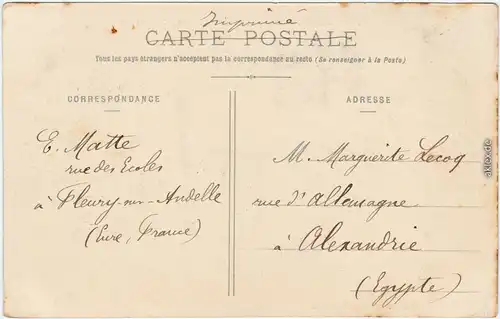 Imprimé
CARTE POSTALE
Tous les pays étrangers n'acceptent pas la correspondance au recto (Se renseigner à la Poste)
CORRESPONDANCE
E. Matte
rue des Ecoles
à Fleury-sur-Andelle
(Eure, France)
ADRESSE
M. Marguerite Lecoq
rue d'Allemagne
à Alexandrie
(Egypte)
akpool.de